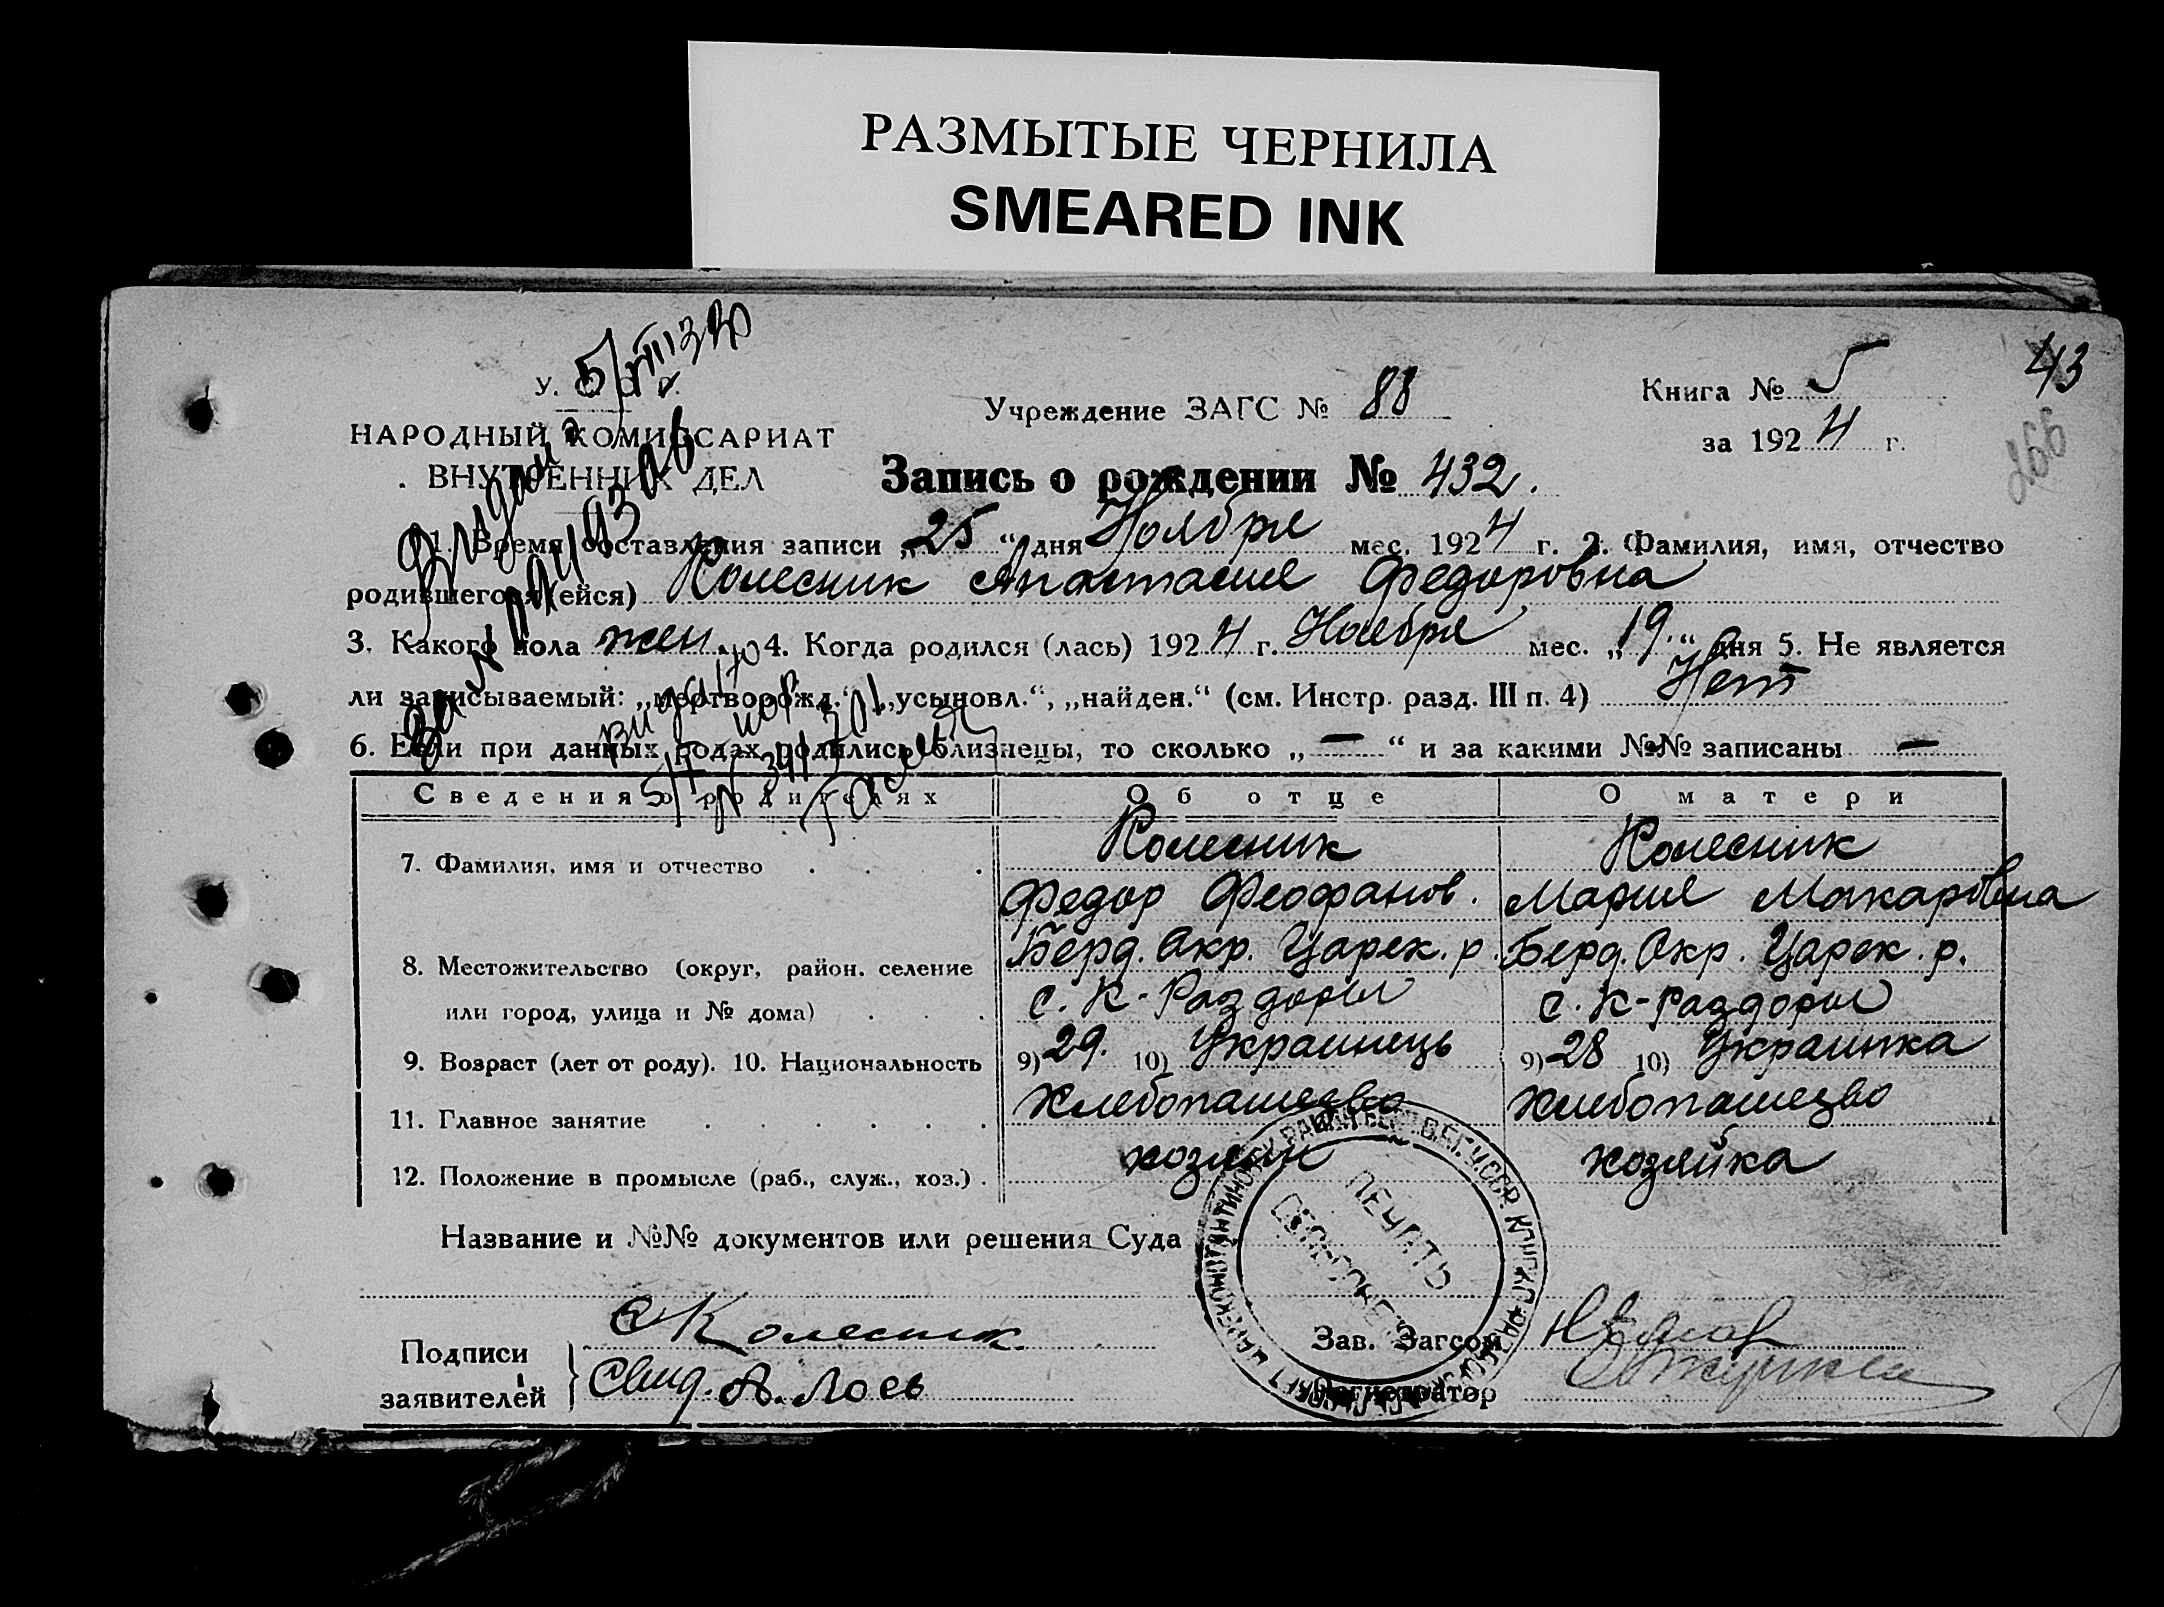 РАЗМЫТЫЕ ЧЕРНИЛА
SMEARED INK
43
Книга № 5
Учреждение ЗАГС № 88
за 1924 г.
НАРОДНЫЙ КОМИССАРИАТ
ВНУТРЕННИХ ДЕЛ
Запись о рождении № 432.
1. Время составления записи „25“ дня Ноября мес. 1924 г. 2. Фамилия, имя, отчество
родившегося (ейся) Колесник Анастасия Федоровна
3. Какого пола жен. 4. Когда родился (лась) 1924 г. Ноября мес. „19.“ дня 5. Не является
ли записываемый: „мертворожд.“, „усыновл.“, „найден.“ (см. Инстр. разд. III п. 4) Нет
6. Если при данных родах родились близнецы, то сколько „—“ и за какими №№ записаны —
Сведения о родителях Об отце О матери
7. Фамилия, имя и отчество Колесник Колесник
Федор Феофанов. Мария Макаровна
8. Местожительство (округ, район, селение Берд. Окр. Царек. р. Берд. Окр. Царек. р.
или город, улица и № дома) с. К-Раздоры с. К-Раздоры
9. Возраст (лет от роду). 10. Национальность 9) 29. 10) Украинець 9) 28 10) Украинка
11. Главное занятие Хлебопашецво Хлебопашецво
12. Положение в промысле (раб., служ., хоз.) хозяин хозяйка
Название и №№ документов или решения Суда
ПЕЧАТЬ
Подписи
заявителей
Колесник
Свид. А. Лось
Зав. Загсом
Регистратор